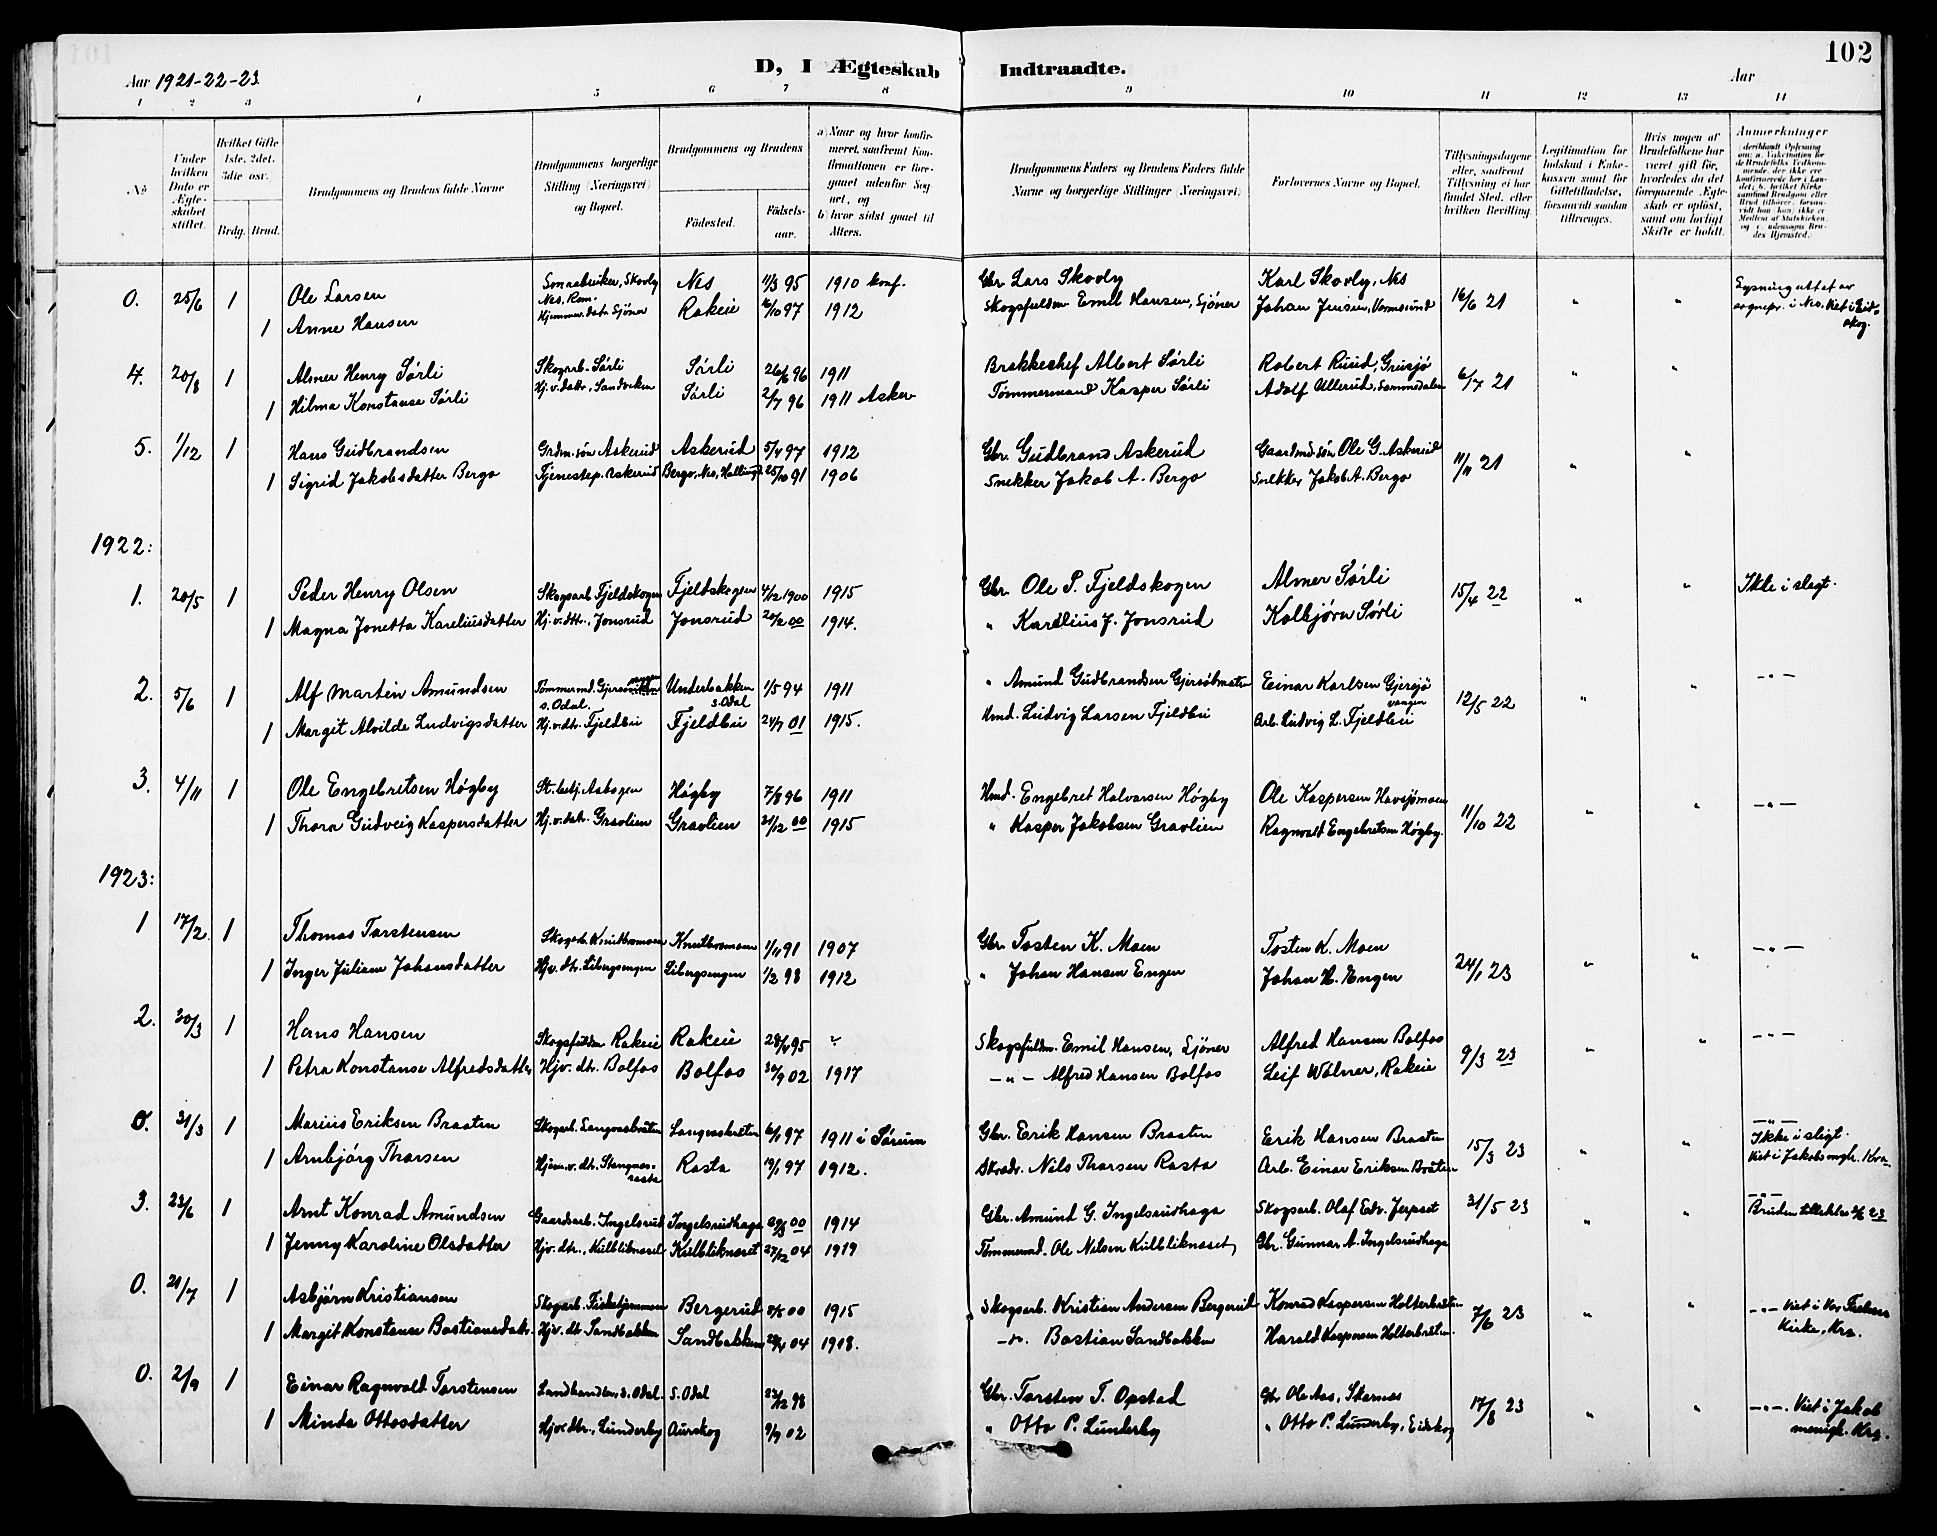 102
Aar 1921-22-23. D, I Ægteskab Indtraadte. Aar
1 2 3 4 5 6 7 8 9 10 11 12 13 14
No.
Under hvilken Dato er Ægteskabet stiftet.
Hvilket Gifte 1ste, 2det, 3die osv.
Brdg. Brud.
Brudgommens og Brudens fulde Navne
Brudgommens borgerlige Stilling (Næringsvei) og Bopæl.
Brudgommens og Brudens
Fødested. Fødselsaar.
a) Naar og hvor konfirmeret, saafremt Konfirmationen er foregaaet udenfor Sognet, og
b) hvor sidst gaaet til Alters.
Brudgommens Faders og Brudens Faders fulde Navne og borgerlige Stillinger (Næringsvei).
Forlovernes Navne og Bopæl.
Tillysningsdagene eller, saafremt Tillysning ei har fundet Sted, efter hvilken Bevilling.
Legitimation for Indskud i Enkekassen samt for Giftetilladelse, forsaavidt saadan tiltrænges.
Hvis nogen af Brudefolkene har været gift før, hvorledes da det foregaaende Ægteskab er opløst, samt om lovligt Skifte er holdt.
Anmerkninger
0. 25/6 1 Ole Larsen Nes 11/3 95 1910 konf. Gbr. Lars Skovly Karl Skovly, Nes 16/6 21 " "
1 Anne Hansen Rakeie 16/10 97 1912 Skogsfuldm. Emil Hansen, Sjöner Johan Jensen, Vormsund
4. 20/8 1 Almer Henry Sørli Skogarb. Sørli Sørli 26/6 96 1911 Brakkechef Albert Sørli Robert Ruud, Grusjø 6/7 21 " "
1 Hilma Konstanse Sørli Hj.v.datr., Sandviken Sørli 2/7 96 1911 Asker Tømmermand Kasper Sørli Adolf Ullerud,
5. 1/12 1 Hans Gudbrandsen Grdm.søn Askerud Askerud 5/4 97 1912 Gbr. Gudbrand Askerud Gaardmd.søn Ole G. Askerud 11/11 21 " "
1 Sigrid Jakobsdatter Bergo Tjenestep. Askerud Bergo, Nes, Hallingd. 25/10 91 1906 Snekker Jakob A. Bergo Snekker Jakob A. Bergo
1922:
1. 20/5 1 Peder Henry Olsen Skogsarb. Fjeldskogen Fjeldskogen 4/12 1900 1915 Gbr. Ole P. Fjeldskogen Almer Sørli 15/4 22 " " Ikke i slegt.
1 Magna Jonetta Kareliusdatter Hj.v.dtr., Jonsrud Jonsrud 20/2 00 1914. " Karelius J. Jonsrud Kolbjørn Sørli
2. 5/6 1 Alf Martin Amundsen Tömmermd. s. Odal. Underbakken s. Odal 1/5 94 1911 " Amund Gudbrandsen Gjersøbmoten Einar Karlsen Gjersjö vangen 12/5 22 " " — " —
1 Margit Alvilde Ludvigsdatter Hj.v.dtr. Fjeldbu Fjeldbu 24/7 01 1915. Hmd. Ludvig Larsen Fjeldbu Arb. Ludvig L. Fjeldbu
3. 4/11 1 Ole Engebretsen Høgby St.betj. Aabogen Høgby 7/8 96 1911 Hmd. Engebret Halvorsen Høgby Ole Kaspersen Havsjømoen 11/10 22 " " — " —
1 Thora Gudveig Kaspersdatter Hj.v.datr. Gravlien Gravlien 21/12 00 1915 " Kasper Jakobsen Gravlien Ragnvald Engebretsen Høgby.
1923:
1 17/2 1 Thomas Torstensen Skogarb. Knutbromoen Knutbromoen 1/11 91 1907 Gbr. Tosten K. Moen Tosten K. Moen 24/1 23 " " — " —
1 Inger Juliane Johansdatter Hjv. dtr. Libergsengen Libergsengen 1/2 98 1912 " Johan Hansen Engen Johan H. Engen
2. 30/3 1 Hans Hansen Skogsfuldm. Rakeie Rakeie 28/4 95 " Skogsfuldm. Emil Hansen, Sjöner Alfred Hansen Bolfos 9/3 23 " " — " —
1 Petra Konstanse Alfredsdatter Hjv. dtr. Bolfos Bolfos 30/9 02 1917 — " — Alfred Hansen Bolfos Leif Wølner, Rakeie
0. 31/3 1 Marius Eriksen Braaten Skogarb. Langvasbråten Langvasbråten 6/1 97 1911 i Sørum Gbr. Erik Hansen Braaten Erik Hansen Braaten 15/3 23 " " — " — Ikke i slegt. Viet i Jakobs mgh. Kra.
1 Arnbjörg Thorsen Hjem.v.dtr. Stangnesrasta Rasta 19/1 97 1912. Skradr. Nils Thorsen Rasta Arb. Einar Eriksen Bråten
3. 23/6 1 Arnt Konrad Amundsen Gaardsarb. Ingelsrud Ingelsrudhaga 29/3 00 1914 Gbr. Amund G. Ingelsrudhaga Skogsarb. Olaf Edv. Jerpset 31/5 23 " " — " —
1 Jenny Karoline Olsdatter Hjv. dtr., Kulbliknæset Kulbliknæset 27/12 04 1919 Tømmermd. Ole Nilsen Kulbliknæset Gbr. Gunnar A. Ingelsrudhaga
0. 21/7 1 Asbjørn Kristiansen Skogarb. Fisketjernmoen Bergerud 00 1915 Skogsarb. Kristian Andersen Bergerud Konrad Kaspersen Holterbråten 7/6 23 " " — " — Viet i Kirke, Kra.
1 Margit Konstanse Bastiansdatr. Hjv. dtr Sandbakken Sandbakken 04 1918. — " — Bastian Sandbakken Harald Kaspersen Holterbråten.
0. 2/9 1 Einar Ragnvald Torstensen Landhandler, s. Odal. S. Odal 23/12 98 Gbr. Torsten T. Opstad Gbr Ole Aas, Skarnes 17/8 23 " " — " — Viet i Jakob menigh. Kra.
1 Minda Ottosdatter Hjv. dtr., Lunderby Aurskog 9/9 02 " Otto P. Lunderby " Otto P. Lunderby, Eidskog